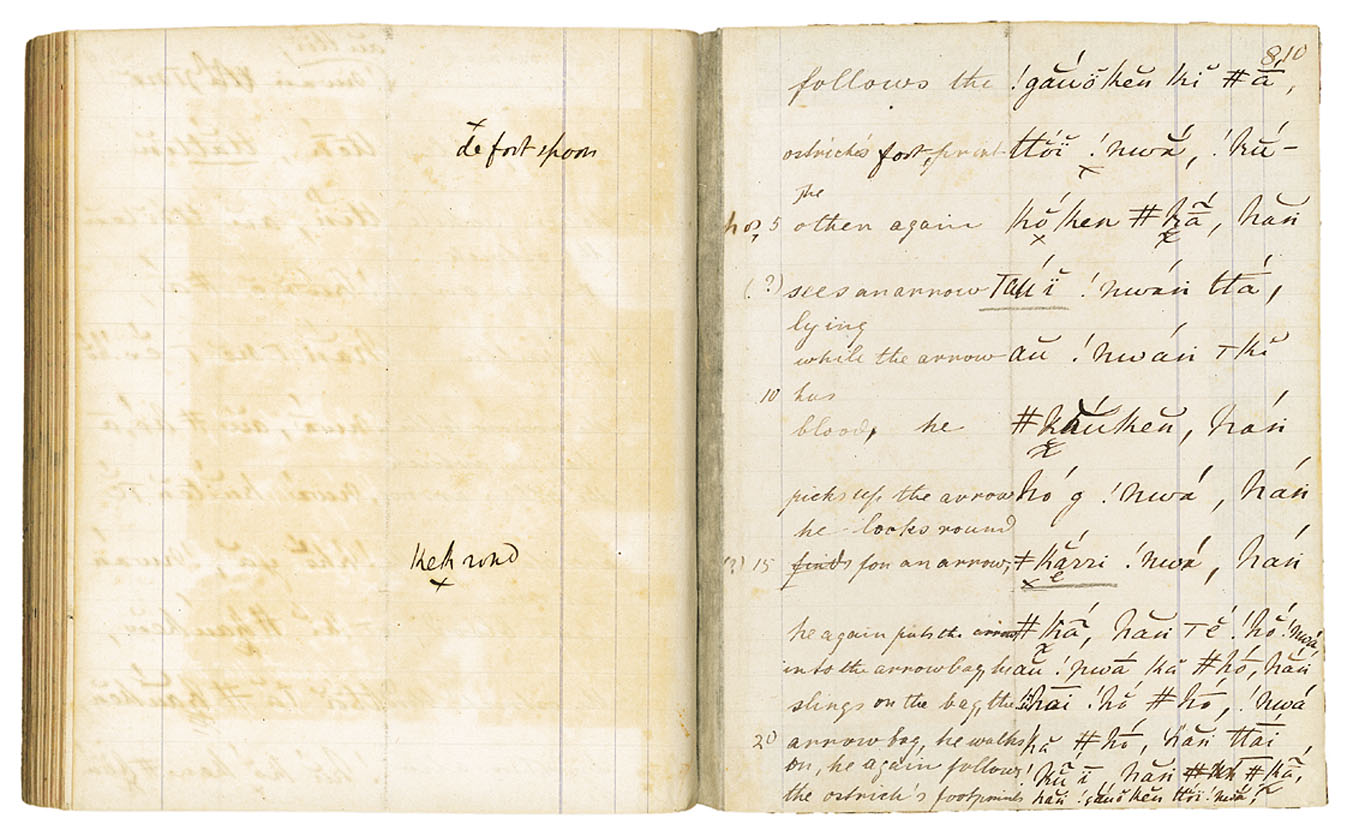 de foot spoor
kekk rond
810
follows the !găúŏken kĭ #ā́,
ostrich's foot, print ttóï !nwá, !kú-
the
5 other again kŏ́ken #kā̃, hăń
(?) sees an arrow Táúï !nwáń ttá,
lying
while the arrow aŭ !nwáń T kĭ
10 has
blood, he #káŭkeŭ, háń
picks up the arrow hó g !nwá, háń
he looks round
(?) 15 finds for an arrow, #kărri !nwá, háń
he again puts the arrow #kā́, hăn T ĕ́ !hŏ́ !nwá,
into the arrow bag, he aŭ !nwá́ ka #hó, hăń
slings on the bag, the !hāi !hŏ #hó, !nwá
20 arrow bag, he walks kă #hó, hăń ttāí
on, he again follows !kŭ ī, hăń #kā́,
the ostrich's footprints hăń !găúŏken ttóï !nwá,